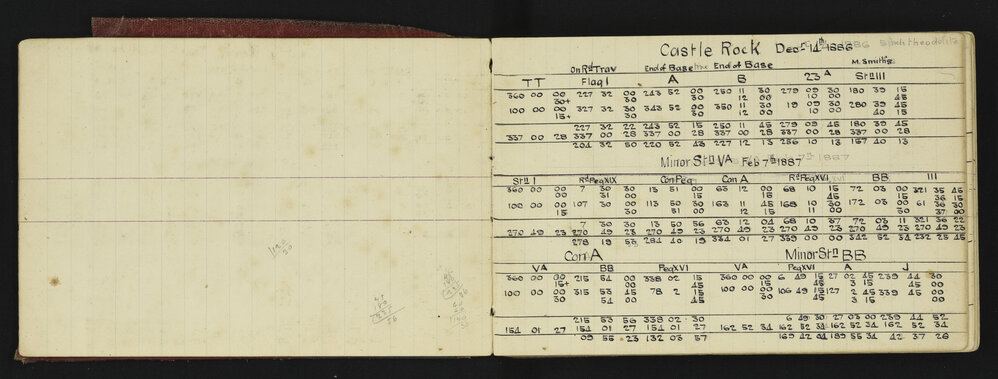 Castle Rock Decr 14th 1886
On Rd Trav End of Base End of Base M. Smith's
TT Flag I A B 23A Stn III
360 00 00 227 32 00 243 52 00 250 11 30 279 09 30 180 39 15
30+ 30 30 12 00 10 00 45
100 00 00 327 32 30 343 52 00 350 11 30 19 09 30 280 39 45
15+ 30 30 12 00 10 00 40 15
227 32 22 243 52 15 250 11 45 279 09 45 180 39 45
337 00 28 337 00 28 337 00 28 337 00 28 337 00 28 337 00 28
204 32 50 220 52 43 227 12 13 256 10 13 157 40 13
Minor Stn VA Feb 7th 1887
Stn I Rd Peg XIX Con Peg Con A Rd Peg XVI BB III
360 00 00 7 30 30 13 51 00 63 12 00 68 10 15 72 03 00 321 35 45
00 31 00 15 15 45 15 36 15
100 00 00 107 30 00 113 50 30 163 11 45 168 10 30 172 03 00 61 36 30
15 30 51 00 12 15 11 00 30 37 00
7 30 30 13 50 56 63 12 04 68 10 37 72 03 11 321 36 22
270 49 23 270 49 23 270 49 23 270 49 23 270 49 23 270 49 23 270 49 23
278 19 53 284 40 19 334 01 27 339 00 00 342 52 34 232 25 45
Con A Minor Stn BB
VA BB Peg XVI VA Peg XVI A J
360 00 00 215 54 00 338 02 15 360 00 00 6 49 15 27 02 45 239 44 30
15+ 00 45 15 45 3 15 45
100 00 00 315 53 45 78 2 15 100 00 00 106 49 15 127 2 45 339 45 00
30 54 00 45 30 45 3 15 00
215 53 56 338 02 30 6 49 30 27 03 00 239 44 52
154 01 27 154 01 27 154 01 27 162 52 34 162 52 34 162 52 34 162 52 34
09 55 23 132 03 57 169 42 04 189 55 34 42 37 26